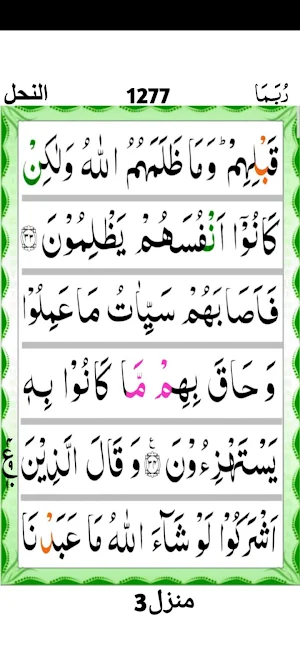 رُبَمَا 1277 النحل
قَبۡلِهِمۡ ؕ وَمَا ظَلَمَهُمُ اللّٰهُ وَلٰكِنۡ
كَانُوۡۤا اَنۡفُسَهُمۡ يَظۡلِمُوۡنَ ﴿۳۳﴾
فَاَصَابَهُمۡ سَيِّاٰتُ مَا عَمِلُوۡا
وَحَاقَ بِهِمۡ مَّا كَانُوۡا بِهٖ
يَسۡتَهۡزِءُوۡنَ ﴿۳۴﴾ ع وَقَالَ الَّذِيۡنَ
اَشۡرَكُوۡا لَوۡ شَآءَ اللّٰهُ مَا عَبَدۡنَا
منزل3